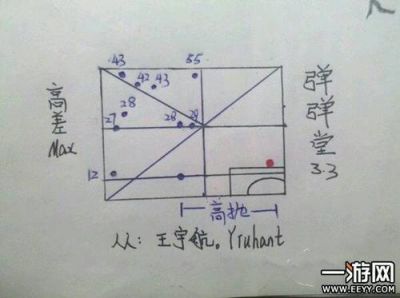 43 55
42 43
28
27 28 29
12
高差
Max
弹弹堂
3.3
高抛
人人: 王宇航。Yruhant
一游网
WWW.EEYY.COM